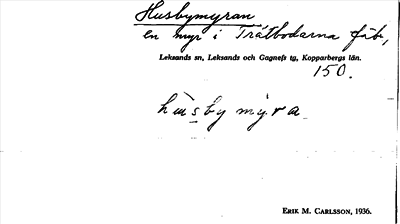 Husbymyran
en myr i Trätbodarna fäb.,
Leksands sn, Leksands och Gagnefs tg, Kopparbergs län.
150.
hùsby my̕ra
ERIK M. CARLSSON, 1936.